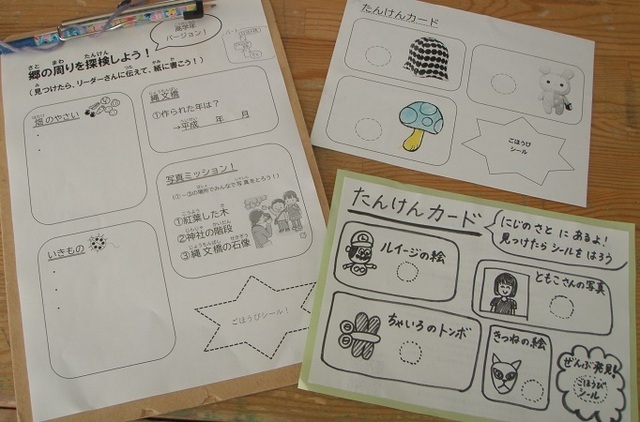 高学年
バージョン！
郷の周りを探検しよう！
さと まわ たんけん
（見つけたら、リーダーさんに伝えて、紙に書こう！）
畑のやさい
・
・
・
縄文橋
①作られた年は？
→平成　年　月
写真ミッション！
（①～③の場所でみんなで写真をとろう！）
①紅葉した木
②神社の階段
③縄文橋の石像
いきもの
・
・
・
ごほうびシール！
たんけんカード
ごほうび
シール
たんけんカード
にじのさと に あるよ！
見つけたら シールを はろう
ルイージの絵
ともこさんの写真
ちゃいろのトンボ
きつねの絵
ぜんぶ発見！
ごほうび
シール